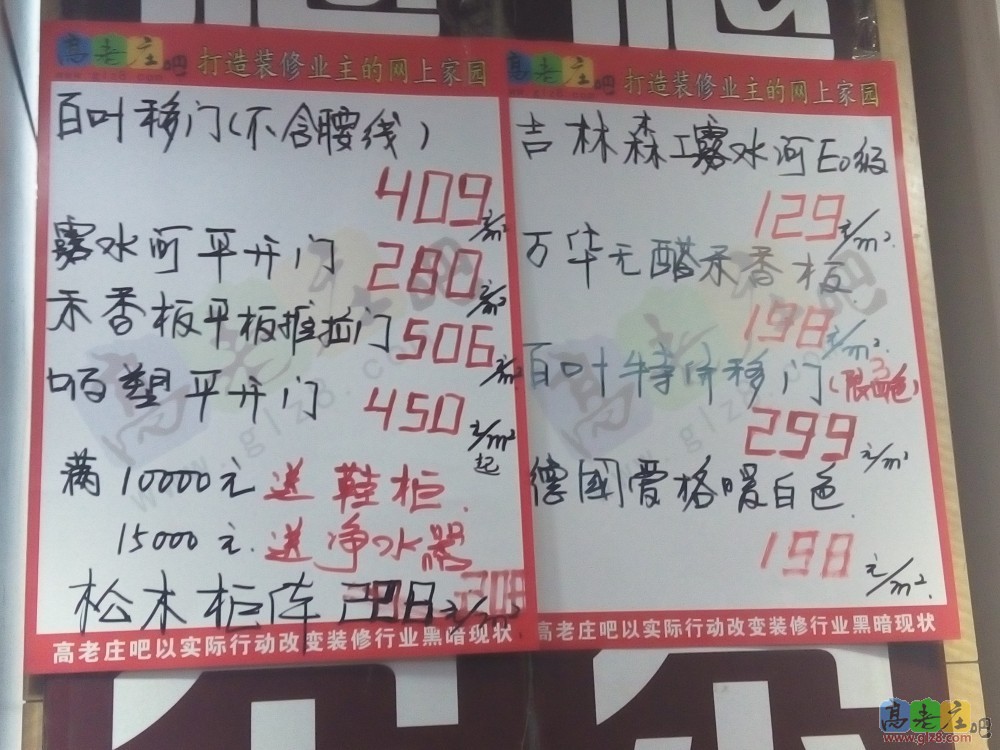 高老庄吧 打造装修业主的网上家园
百叶移门(不含腰线)
409元/m²
露水河平开门 280元/m²
禾香板平板推拉门 506元/m²
吸塑平开门 450元/m²起
满10000元送鞋柜
15000元送净水器
松木柜体
高老庄吧以实际行动改变装修行业黑暗现状
高老庄吧 打造装修业主的网上家园
吉林森工露水河E0级
129元/m²
万华无醛禾香板
198元/m²
百叶特价移门(限3色)
299元/m²
德国爱格暖白色
198元/m²
高老庄吧以实际行动改变装修行业黑暗现状
高老庄吧
www.glz8.com